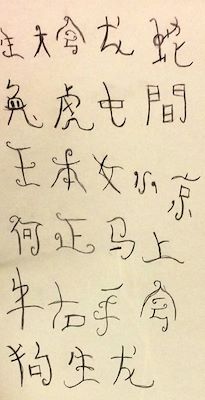 生大會龙蛇
兔虎屯間
王本女小京
何正马上
牛右手會
狗生龙